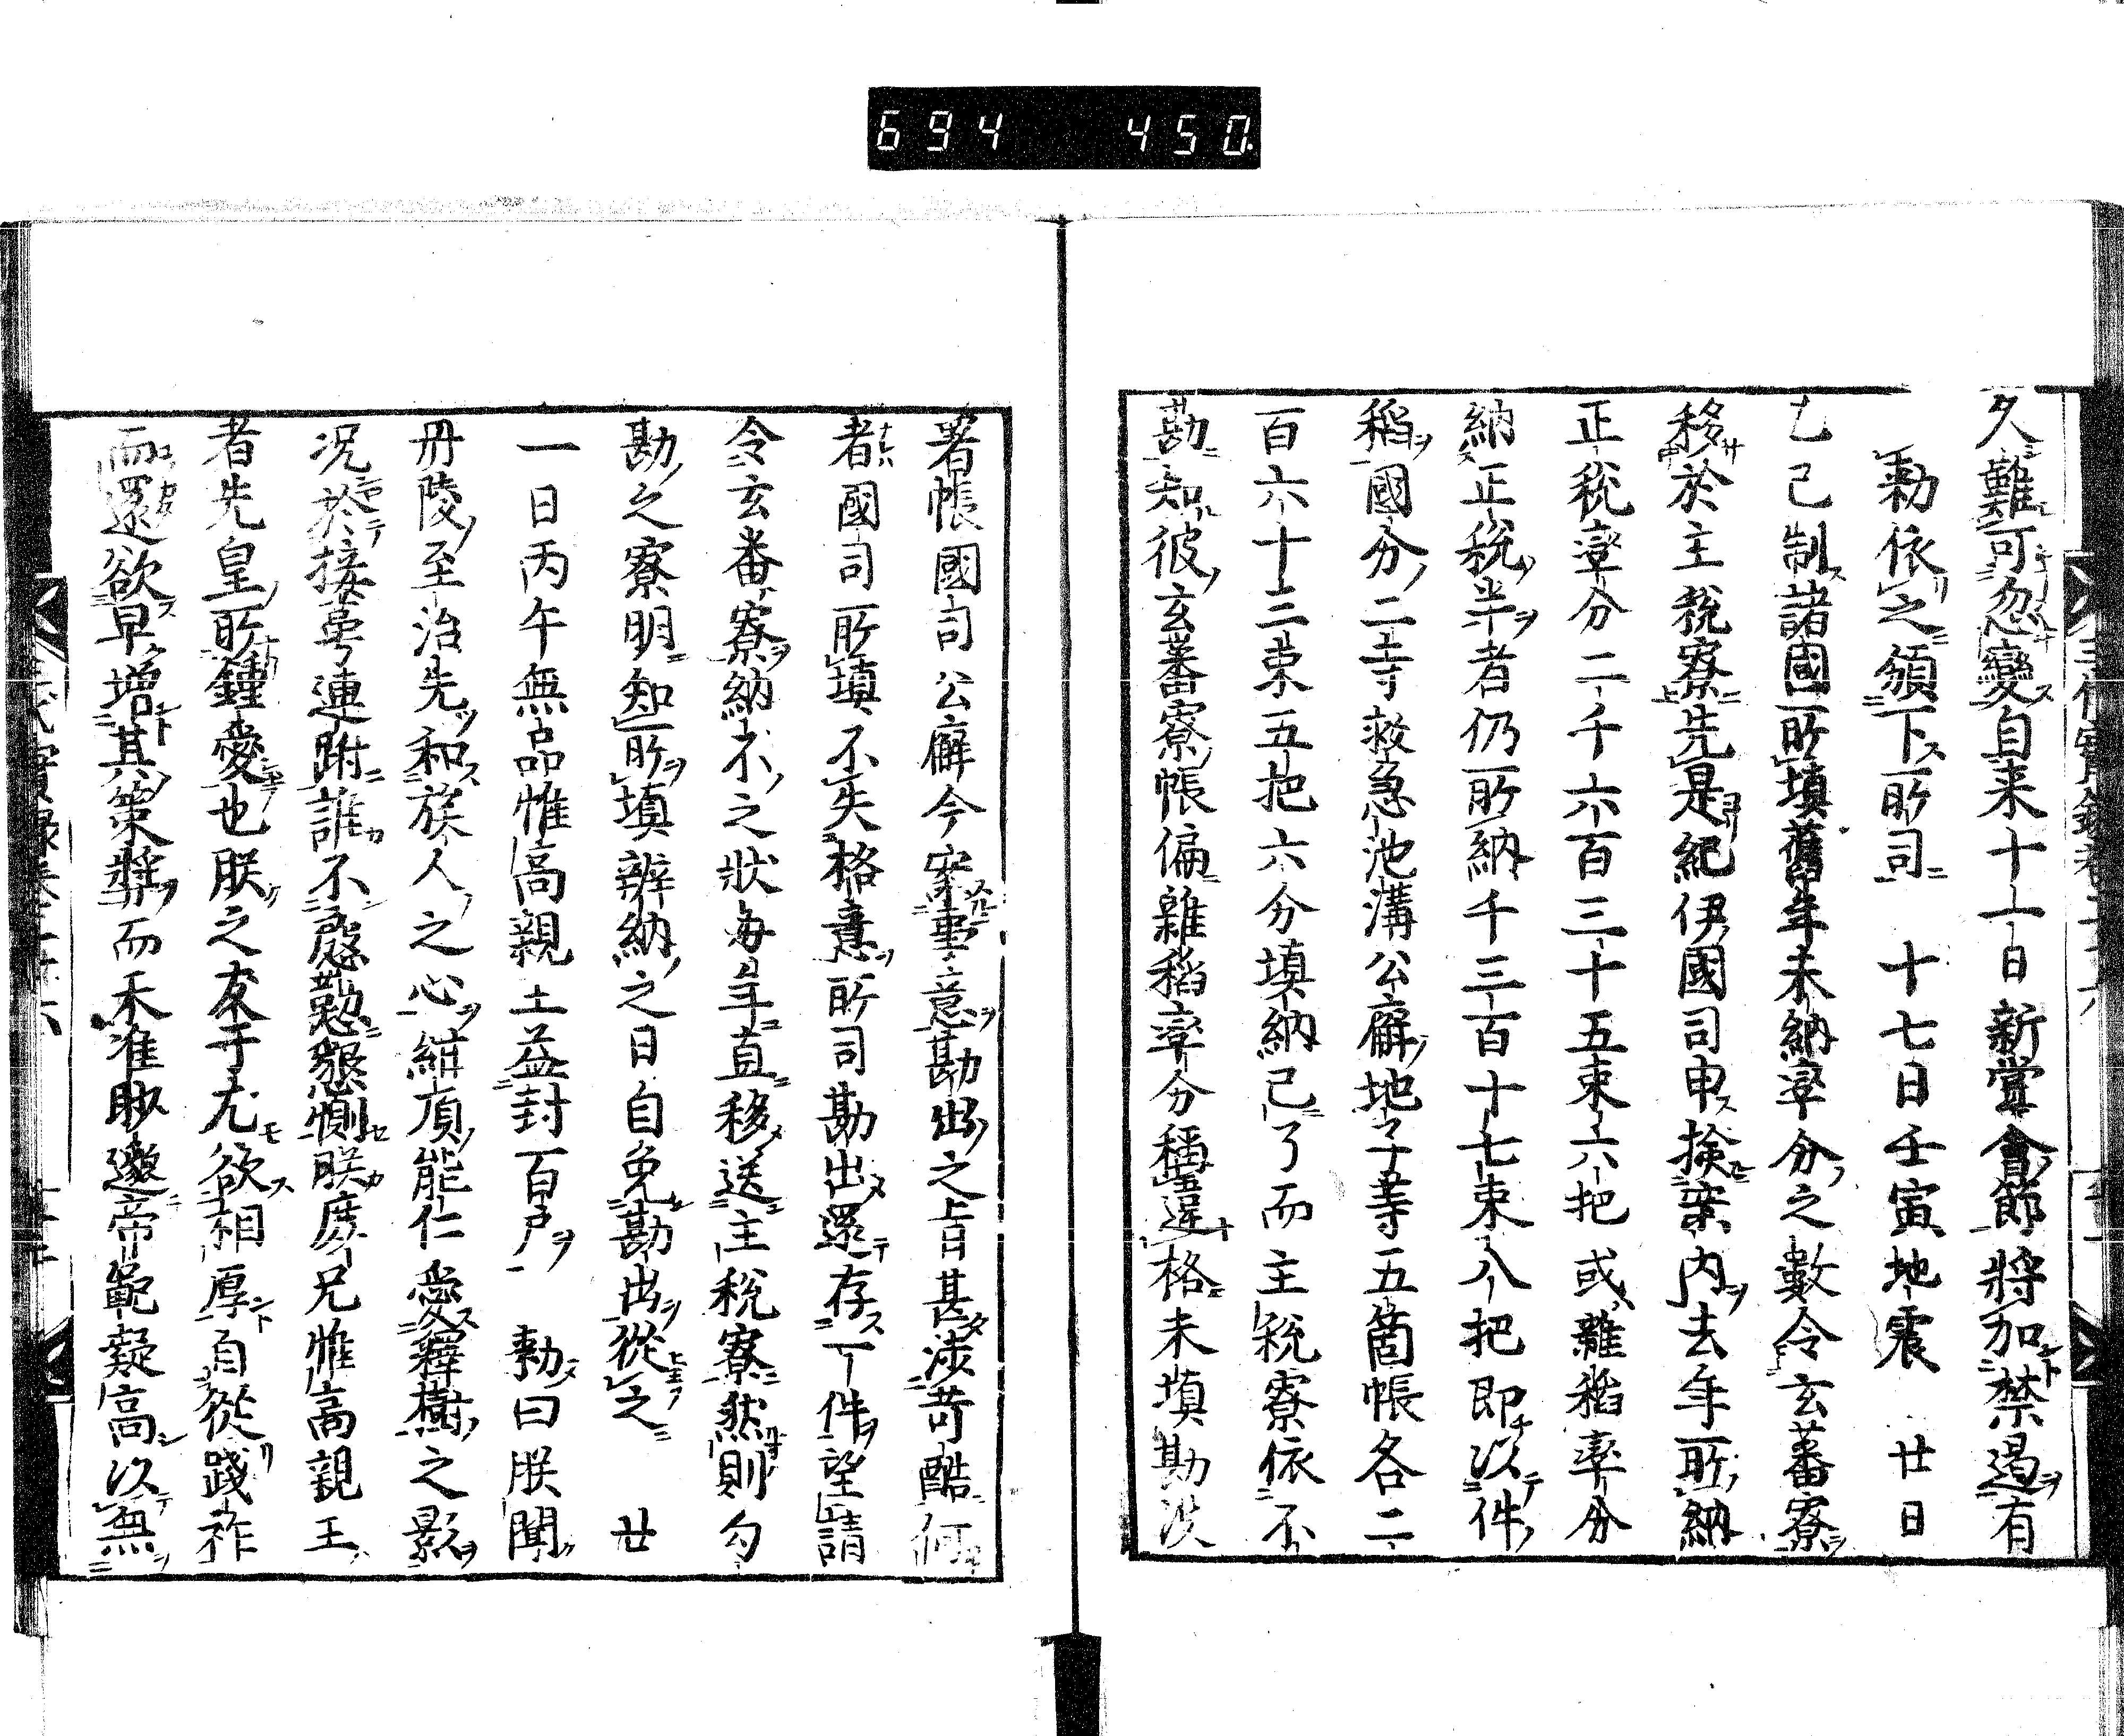 694 450
久難可忽變自来十一日新嘗會節將加禁遏有
勅依之頒下所司　十七日壬寅地震　廿日
乙巳制諸國所塡舊年未納率分之數令玄蕃寮
移於主税寮先是紀伊國司申挨案内去年所納
正税率分二千六百三十五束六把或雜稻率分
納正税半者仍所納千三百十七束八把即以件
稻國分二寺救急池溝公廨地子等五箇帳各二
百六十三束五把六分塡納已了而主税寮依不
勘知彼玄蕃寮帳偏雜稻率分種違格未塡勘没
署帳國司公廨今案事意勘出之旨甚渉苛酷何
者國司所塡不失格意所司勘出還存一件望請
令玄番寮納不之狀毎年直移送主税寮然則勾
勘之寮明知所塡辨納之日自免勘出從之　廿
一日丙午無品惟高親王益封百戸　勅曰朕聞
丹陵至治先和族人之心紺頂能仁愛釋樹之影
况於接萼連跗誰不慇懃懇惻朕庶兄惟高親王
者先皇所鍾愛也朕之友于尤欲相厚自從踐祚
而還欲早増其策奬而未准眇邈帝範凝高以無